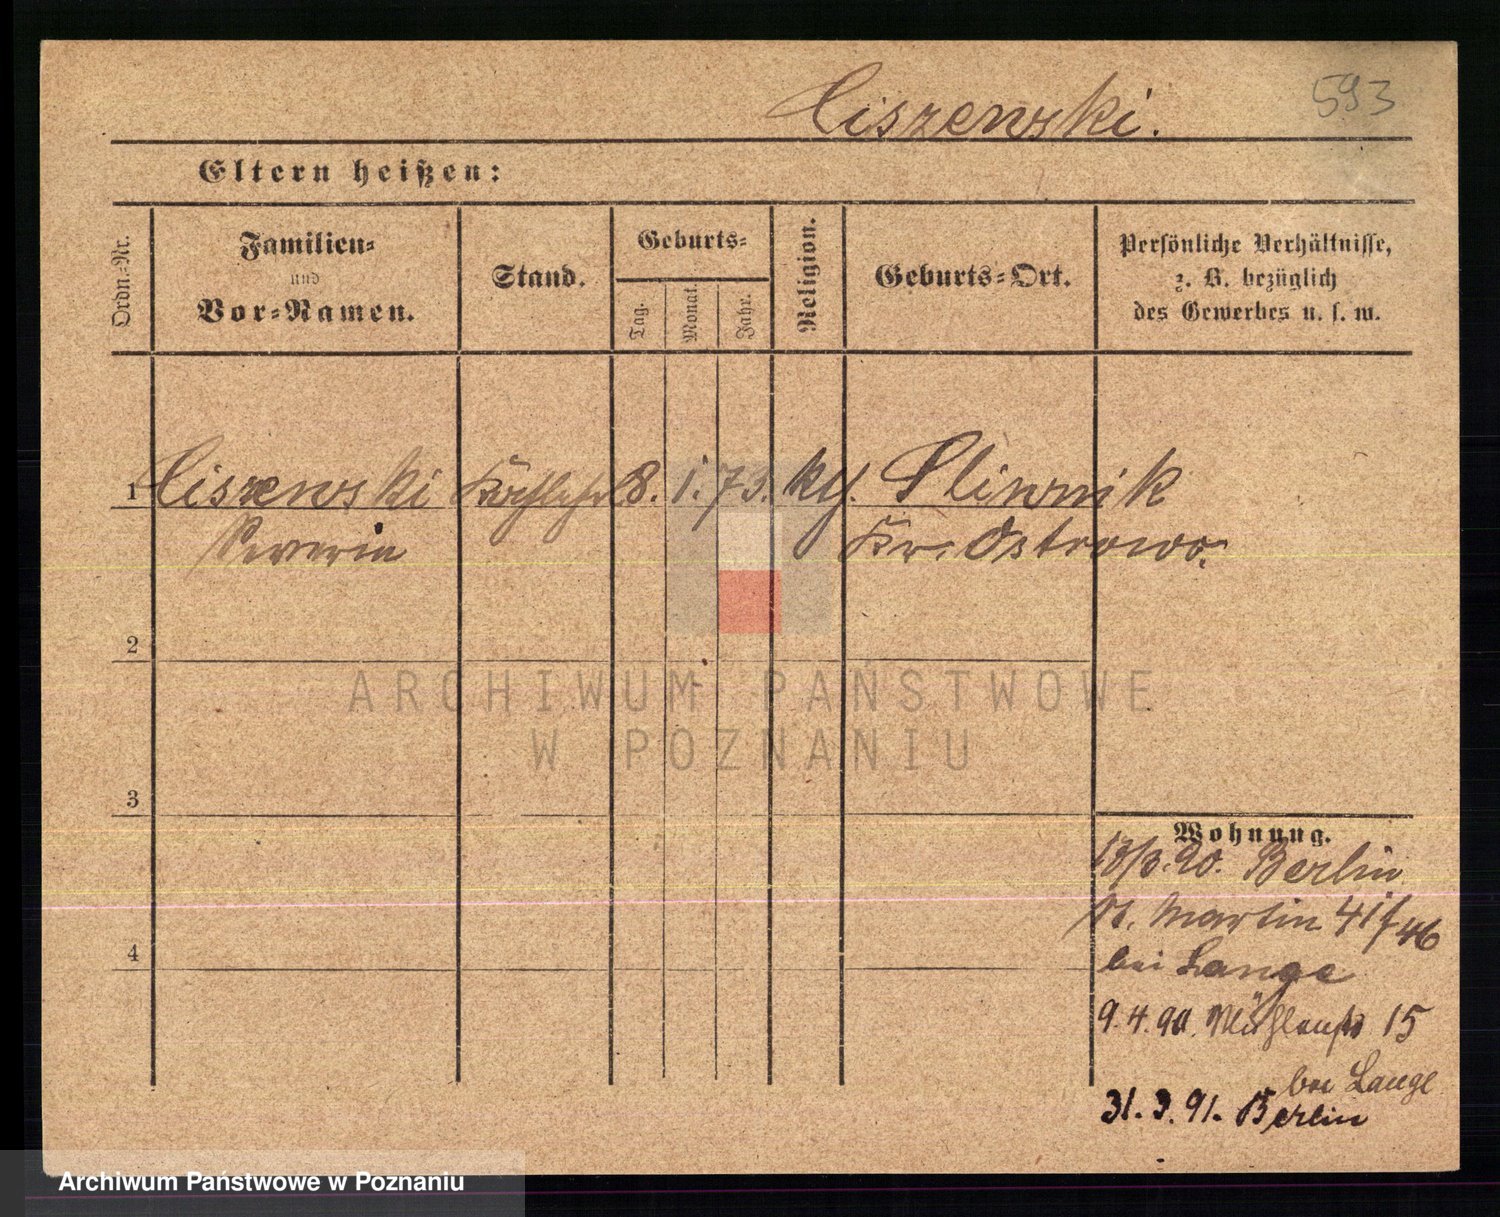 Ciszewski.
593
Eltern heißen:
Ordn.-Nr.
Familien-
und
Vor-Namen.
Stand.
Geburts-
Tag.
Monat.
Jahr.
Religion.
Geburts-Ort.
Persönliche Verhältnisse,
z. B. bezüglich
des Gewerbes u. s. w.
1 Ciszewski 8. 1. 73. kth. Sliwnik
Severin Kr. Ostrowo.
2
ARCHIWUM PAŃSTWOWE
W POZNANIU
3
Wohnung.
90. Berlin
St. Martin 41 / 46
bei Lange
9. 4. 90. Mühlenstr 15
bei Lange
4
31. 3. 91. Berlin
Archiwum Państwowe w Poznaniu